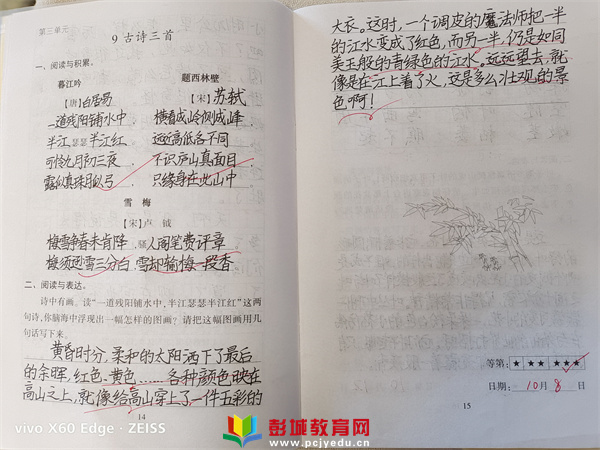 第三单元
9 古诗三首
一、阅读与积累。
暮江吟
【唐】白居易
一道残阳铺水中，
半江瑟瑟半江红。
可怜九月初三夜，
露似真珠月似弓。
题西林壁
【宋】苏轼
横看成岭侧成峰，
远近高低各不同。
不识庐山真面目，
只缘身在此山中。
雪梅
【宋】卢钺
梅雪争春未肯降，骚人阁笔费评章。
梅须逊雪三分白，雪却输梅一段香。
二、阅读与表达。
诗中有画。读“一道残阳铺水中，半江瑟瑟半江红”这两
句诗，你脑海中浮现出一幅怎样的图画？请把这幅图画用几
句话写下来。
黄昏时分，柔和的太阳洒下了最后
的余晖，红色、黄色……各种颜色映在
高山之上，就像给高山穿上了一件五彩的
14
大衣。这时，一个调皮的魔法师把一半
的江水变成了红色，而另一半，仍是如同
美玉般的青绿色的江水。远远望去，就
像是在江上着了火，这是多么壮观的景
色啊！
等第：★ ★ ★ ★★★
日期：10月8日
15
vivo X60 Edge · ZEISS
彭城教育网
www.pcjyedu.cn